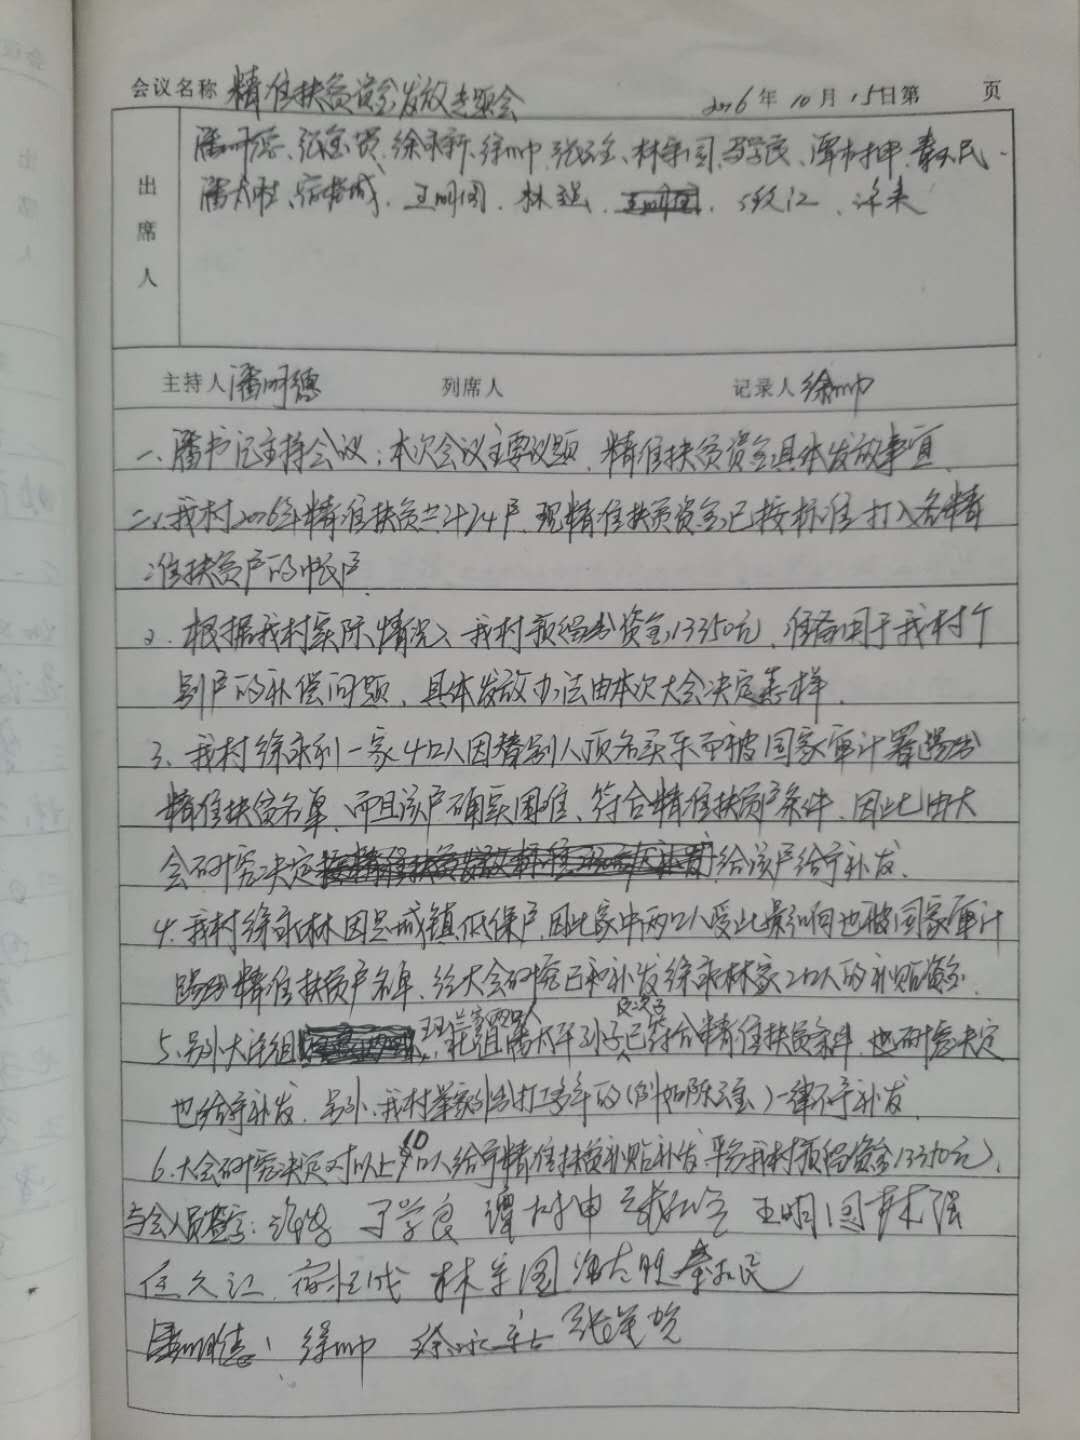 会议名称 精准扶贫资金发放专题会 2016年10月15日第 页
出席人
潘明德、张宝贤、徐永新、徐帅、张玉宝、林宗国、马学良、谭树申、秦永民
潘太胜、宿桂成、王明国、林强、任久江、徐来
主持人 潘明德 列席人 记录人 徐帅
一、潘书记主持会议:本次会议主要议题、精准扶贫资金具体发放事宜
二、我村2016年精准扶贫共计24户,现精准扶贫资金已按标准打入各精
准扶贫户的帐户
2、根据我村实际情况,我村预留出资金13350元,准备用于我村个
别户的补偿问题、具体发放办法由本次大会决定怎样.
3、我村徐永利一家4口人因替别人顶名买车而被国家审计署踢出
精准扶贫名单、而且该户确实困难、符合精准扶贫户条件、因此由大
会研究决定给该户给予补发.
4、我村徐永林因是城镇低保户,因此家中两口人受此影响也被国家审计
踢出精准扶贫户名单、经大会研究已和补发徐永林家2口人的补贴资金.
5、另外大许组 家两口人 组潘太平孙子已符合精准扶贫条件,也研究决定
也给予补发.另外、我村举家外出打工多年的(例如陈玉宝)一律不予补发.
6、大会研究决定对以上10口人给予精准扶贫补贴补发,平分我村预留资金13350元),
与会人员签字: 马学良 谭树申 张玉宝 王明国 林强
任久江 宿桂成 林宗国 潘太胜 秦永民
潘明德 徐帅 徐永新 张宝贤